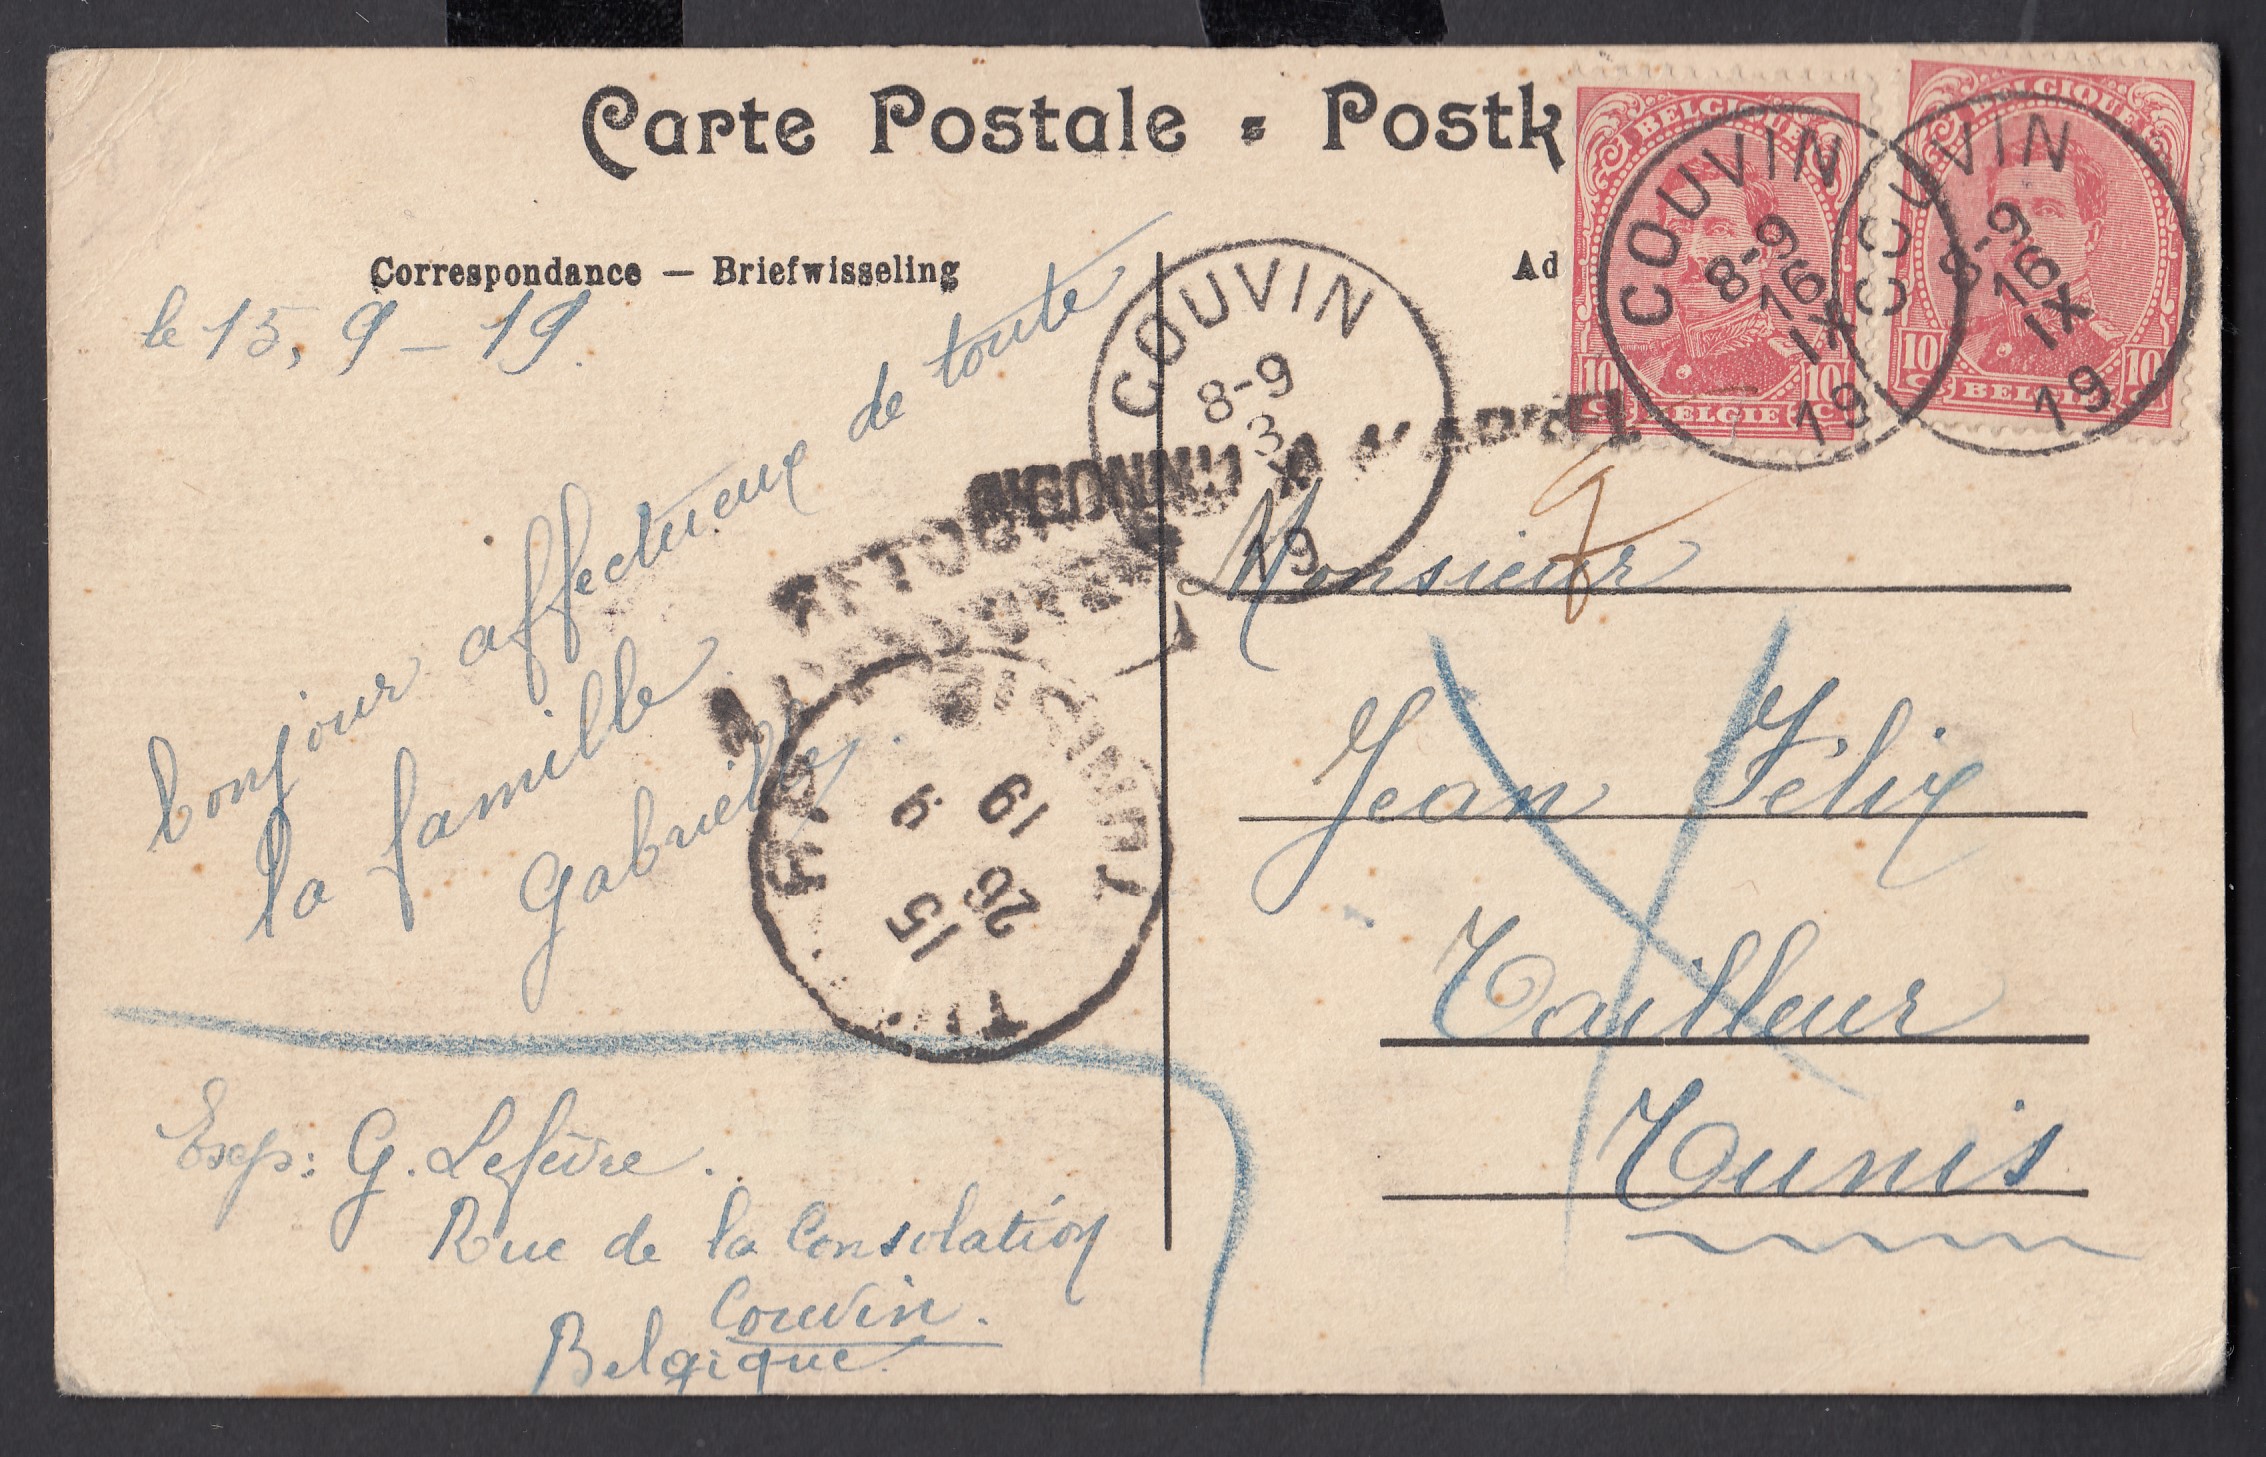 Carte Postale = Postk
Correspondance — Briefwisseling
Ad
le 15, 9 - 19.
bonjour affectueux de toute
la famille
Gabrielle.
Exp: G. Lefèvre.
Rue de la Consolation
Couvin.
Belgique.
Monsieur
Jean Félix
Tailleur
Tunis
BELGIQUE
10 10
BELGIE
COUVIN
8-9
16
IX
19
BELGIQUE
10 10
BELGIE
COUVIN
8-9
16
IX
19
COUVIN
8-9
3
19
INCONNU A L'APPEL
RETOUR
15
26
9
19